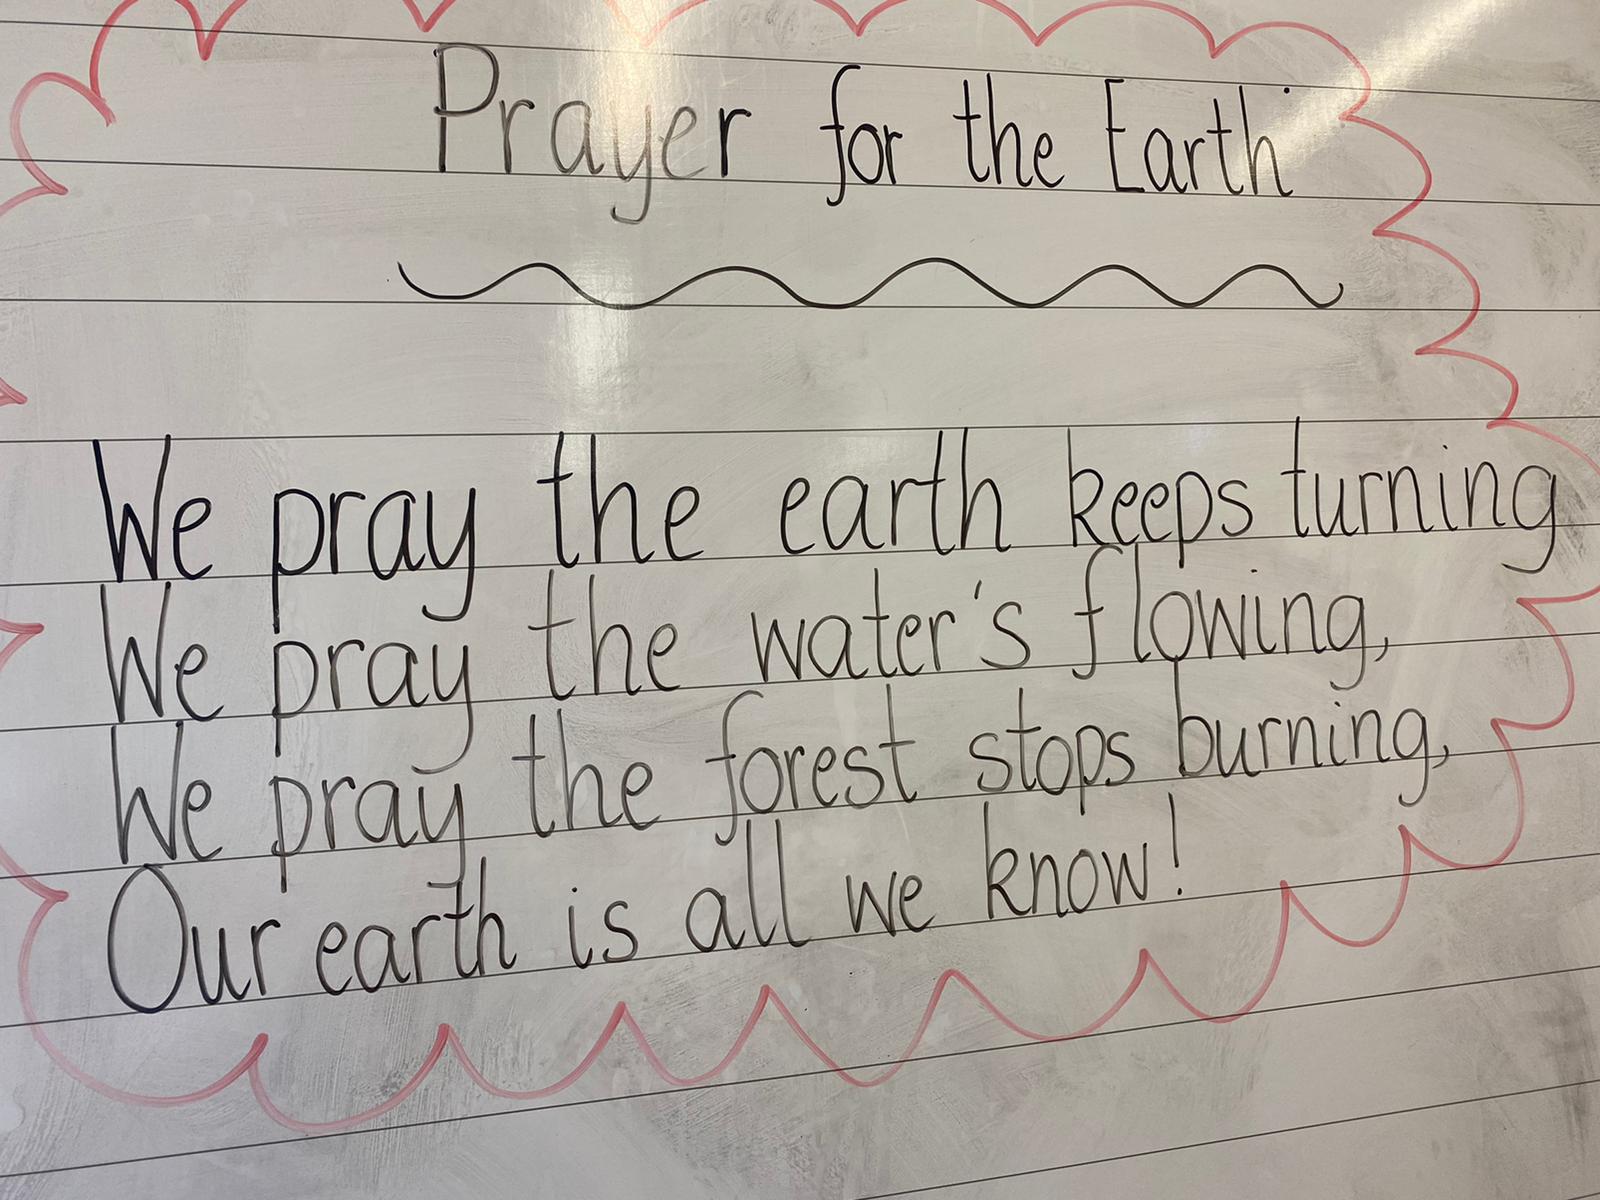 Prayer for the Earth
We pray the earth keeps turning
We pray the water's flowing,
We pray the forest stops burning,
Our earth is all we know!